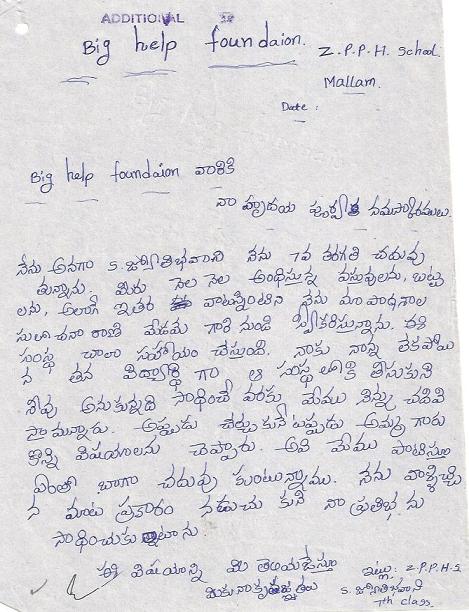 ADDITIONAL
Big help foundaion.
Z.P.P.H. School.
Mallam.
Date :
Big help foundaion వారికి
నా హృదయ పూర్వక నమస్కారములు.
నేను అనగా S.జ్యోతిభవాని నేను 7వ తరగతి చదువు
తున్నాను. మీరు నెల నెల అంధిస్తున్న వస్తువులను, బట్ట
లను, అలాగే ఇతర వాటన్నింటిని నేను మా పాఠశాల
సులోచనా రాణి మేడమ్ గారి నుండి స్వీకరిస్తున్నాను. ఈ
సంస్థ చాలా సహాయం చేస్తుంది. నాకు నాన్న లేకపోయి
న తన విద్యార్థి గా ఆ సంస్థ లోకి తీసుకుని
నీవు అనుకున్నది సాధించే వరకు మేము నిన్ను చదివి
స్తామన్నారు. అప్పుడు చేర్చుకునేటప్పుడు అమ్మ గారు
కొన్ని విషయాలను చెప్పారు. అవి మేము పాటిస్తూ
ఎంతో బాగా చదువు కుంటున్నాము. నేను వాళ్ళిచ్చి
న మాట ప్రకారం నడుచు కుని నా ప్రతిభ ను
సాధించుకు ంటాను
ఈ విషయాన్ని మీ తెలియజేస్తూ
మీకు నా కృతజ్ఞతలు
ఇట్లు: Z.P.P.H.S
S. జ్యోతిభవాని
7th class.